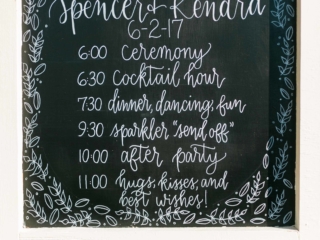 Spencer + Kendra
6-2-17
6:00 ceremony
6:30 cocktail hour
7:30 dinner, dancing, fun
9:30 sparkler "send off"
10:00 after party
11:00 hugs, kisses, and
best wishes!